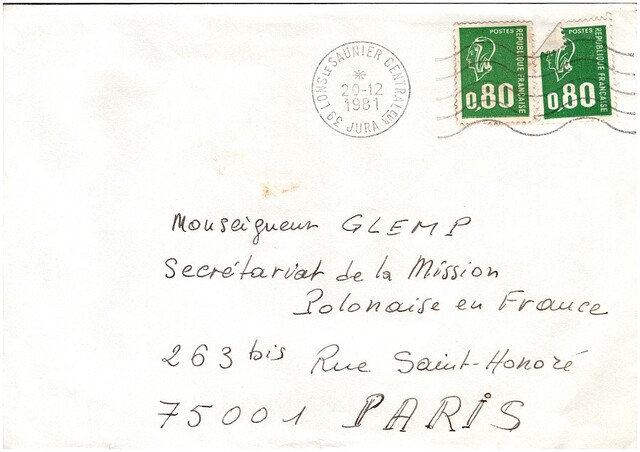 39 LONS LE SAUNIER CENTRALEUR
20-12
1981
JURA
POSTES
REPUBLIQUE FRANÇAISE
0,80
POSTES
REPUBLIQUE FRANÇAISE
0,80
Monseigneur GLEMP
Secrétariat de la Mission
Polonaise en France
263 bis Rue Saint-Honoré
75001 PARIS